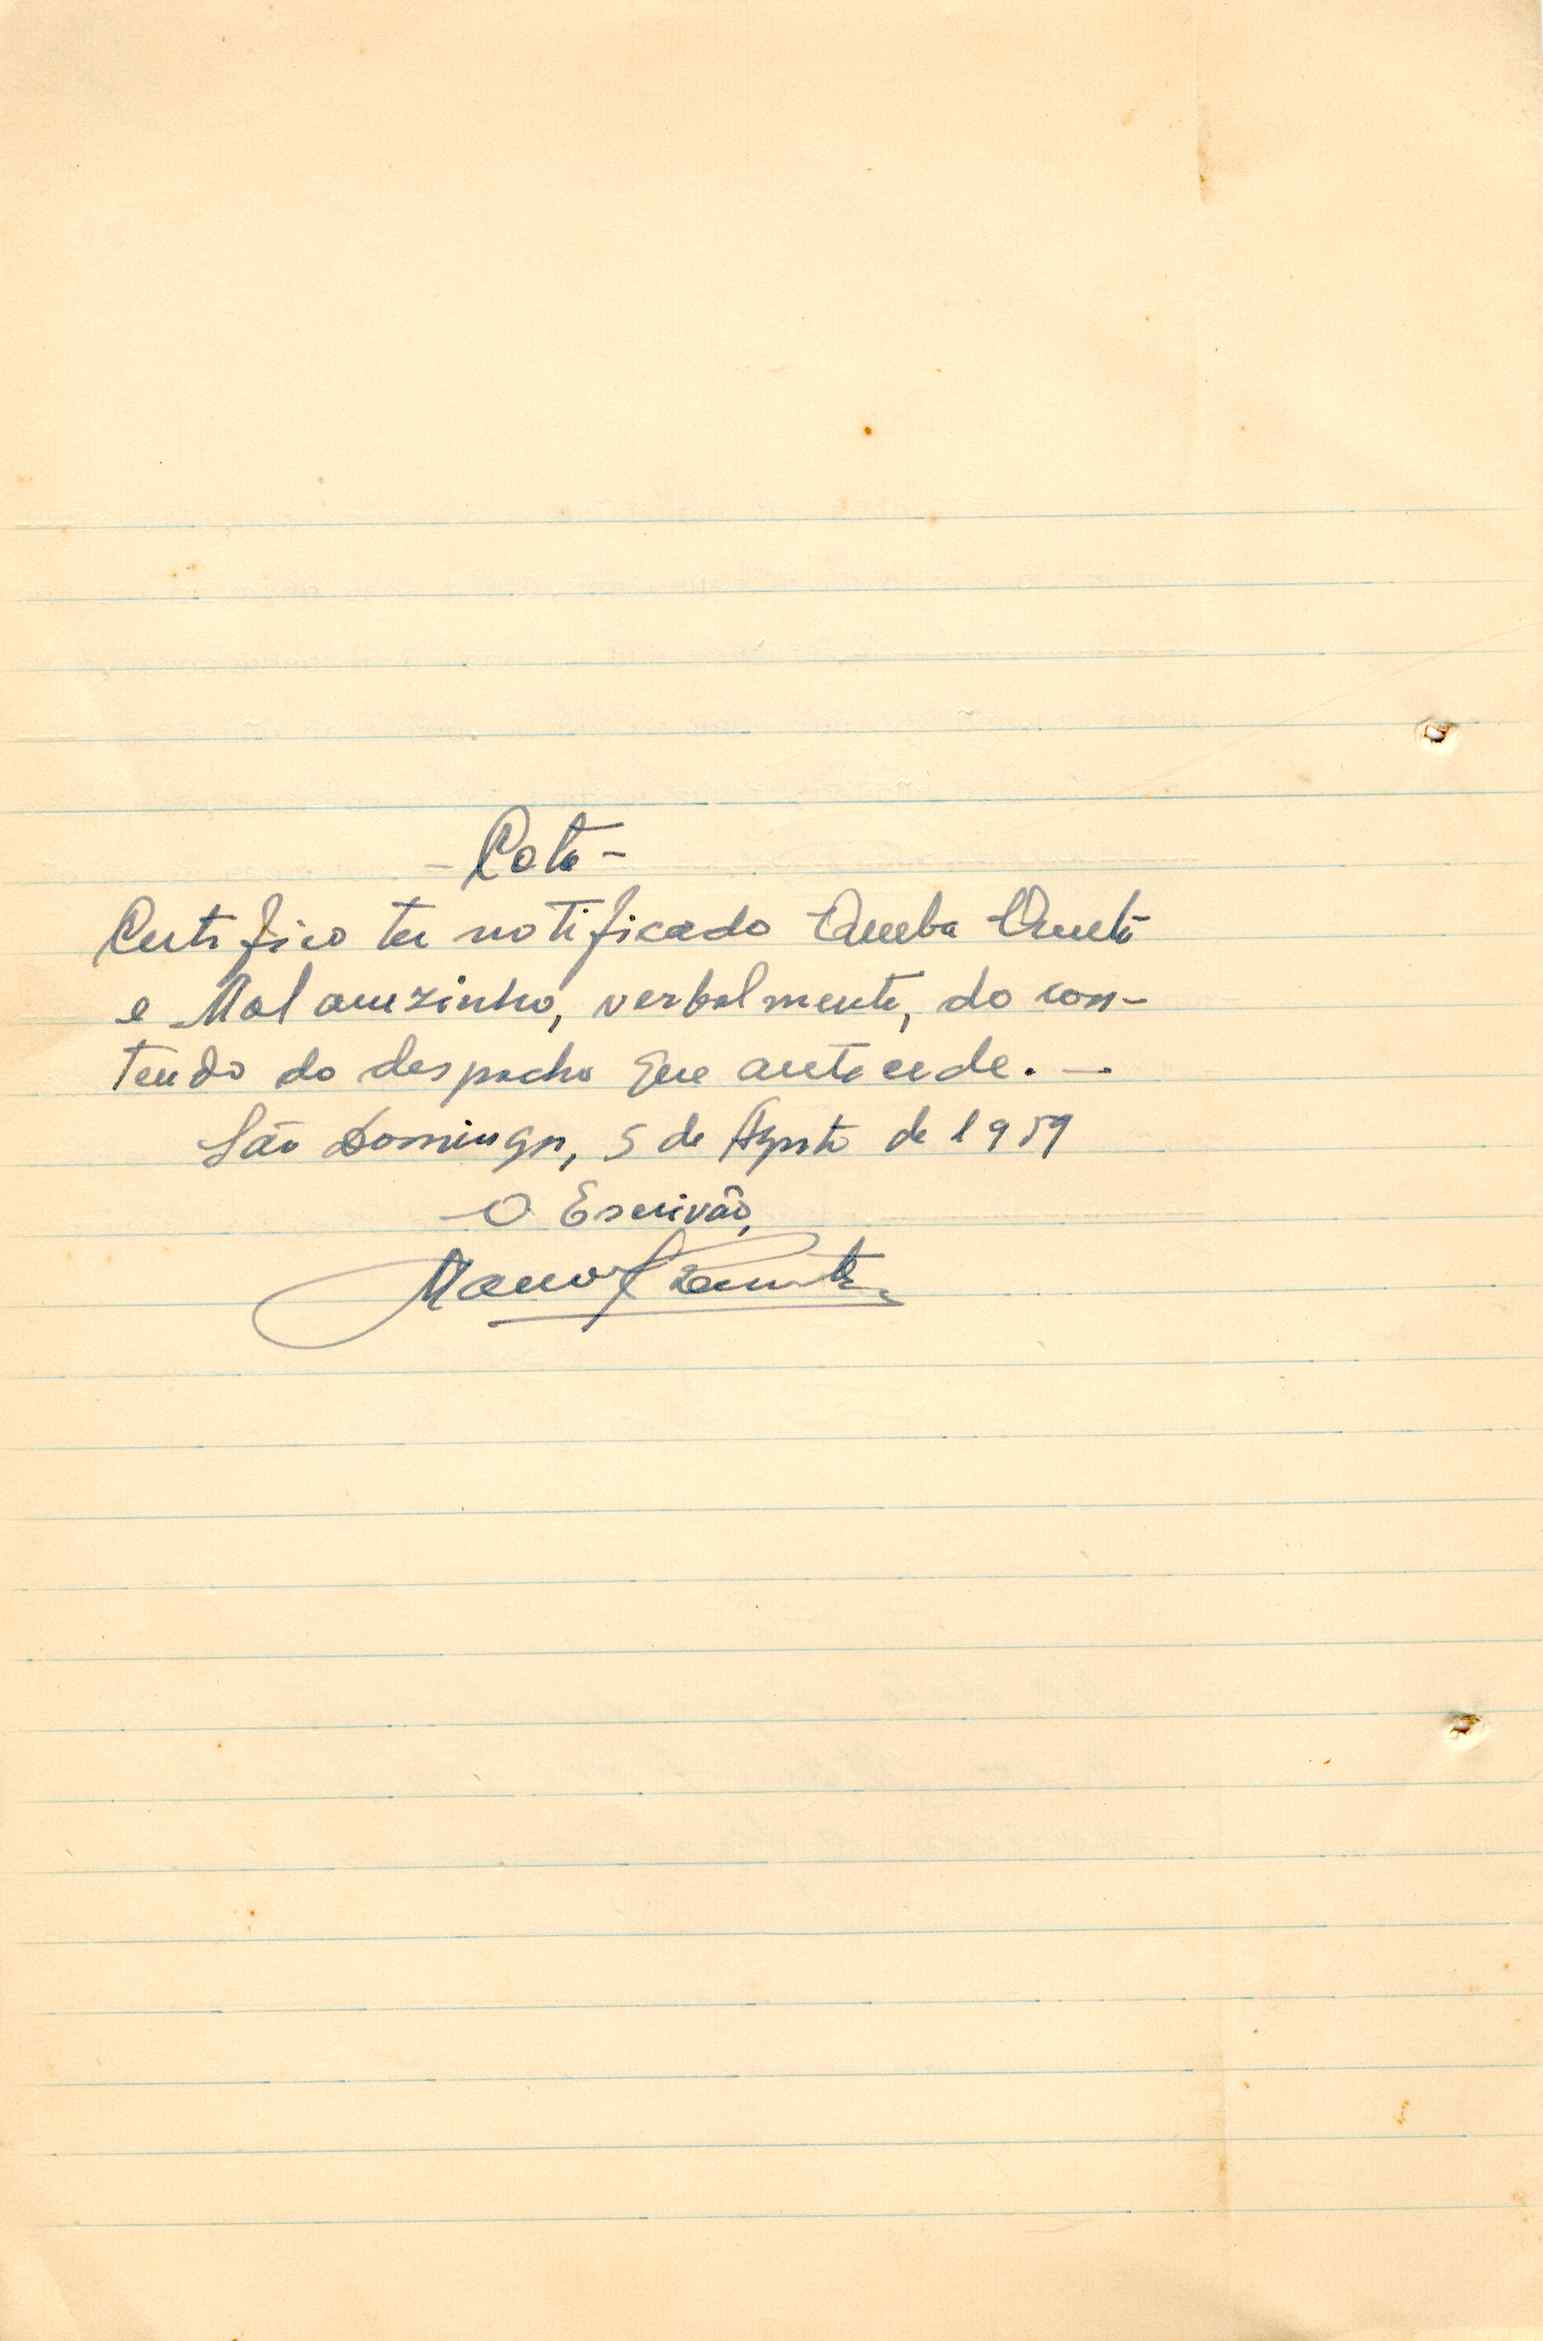 - Cota -
Certifico ter notificado
e Malamzinho, verbalmente, do con-
teudo do despacho que antecede. -
São Domingos, 5 de Agosto de 1959
O Escrivão,